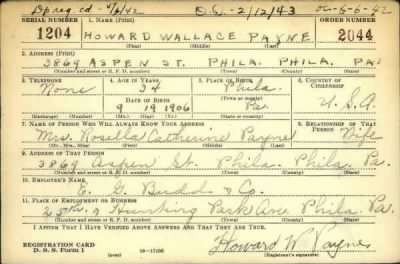 Dp reg cd - 4/6/42 D.O. - 2/12/43 OC-5-6-42
SERIAL NUMBER 1. NAME (Print) ORDER NUMBER
1204 HOWARD WALLACE PAYNE 2044
(First) (Middle) (Last)
2. ADDRESS (Print)
3869 ASPEN ST. PHILA. PHILA. PA
(Number and street or R. F. D. number) (Town) (County) (State)
3. TELEPHONE 4. AGE IN YEARS 5. PLACE OF BIRTH 6. COUNTRY OF CITIZENSHIP
None 34 Phila.
(Town or county)
DATE OF BIRTH
9 19 1906 Pa. U.S.A.
(Mo.) (Day) (Yr.) (State or country)
7. NAME OF PERSON WHO WILL ALWAYS KNOW YOUR ADDRESS 8. RELATIONSHIP OF THAT PERSON
Mrs. Rosella Catherine Payne Wife
(Mr., Mrs., Miss) (First) (Middle) (Last)
9. ADDRESS OF THAT PERSON
3869 Aspen St. Phila. Phila. Pa.
(Number and street or R. F. D. number) (Town) (County) (State)
10. EMPLOYER'S NAME
E. G. Budd & Co.
11. PLACE OF EMPLOYMENT OR BUSINESS
25th & Hunting Park Ave Phila. Pa.
(Number and street or R. F. D. number) (Town) (County) (State)
I AFFIRM THAT I HAVE VERIFIED ABOVE ANSWERS AND THAT THEY ARE TRUE.
REGISTRATION CARD
D. S. S. Form 1 (over) 16-17105 Howard W Payne
(Registrant's signature)